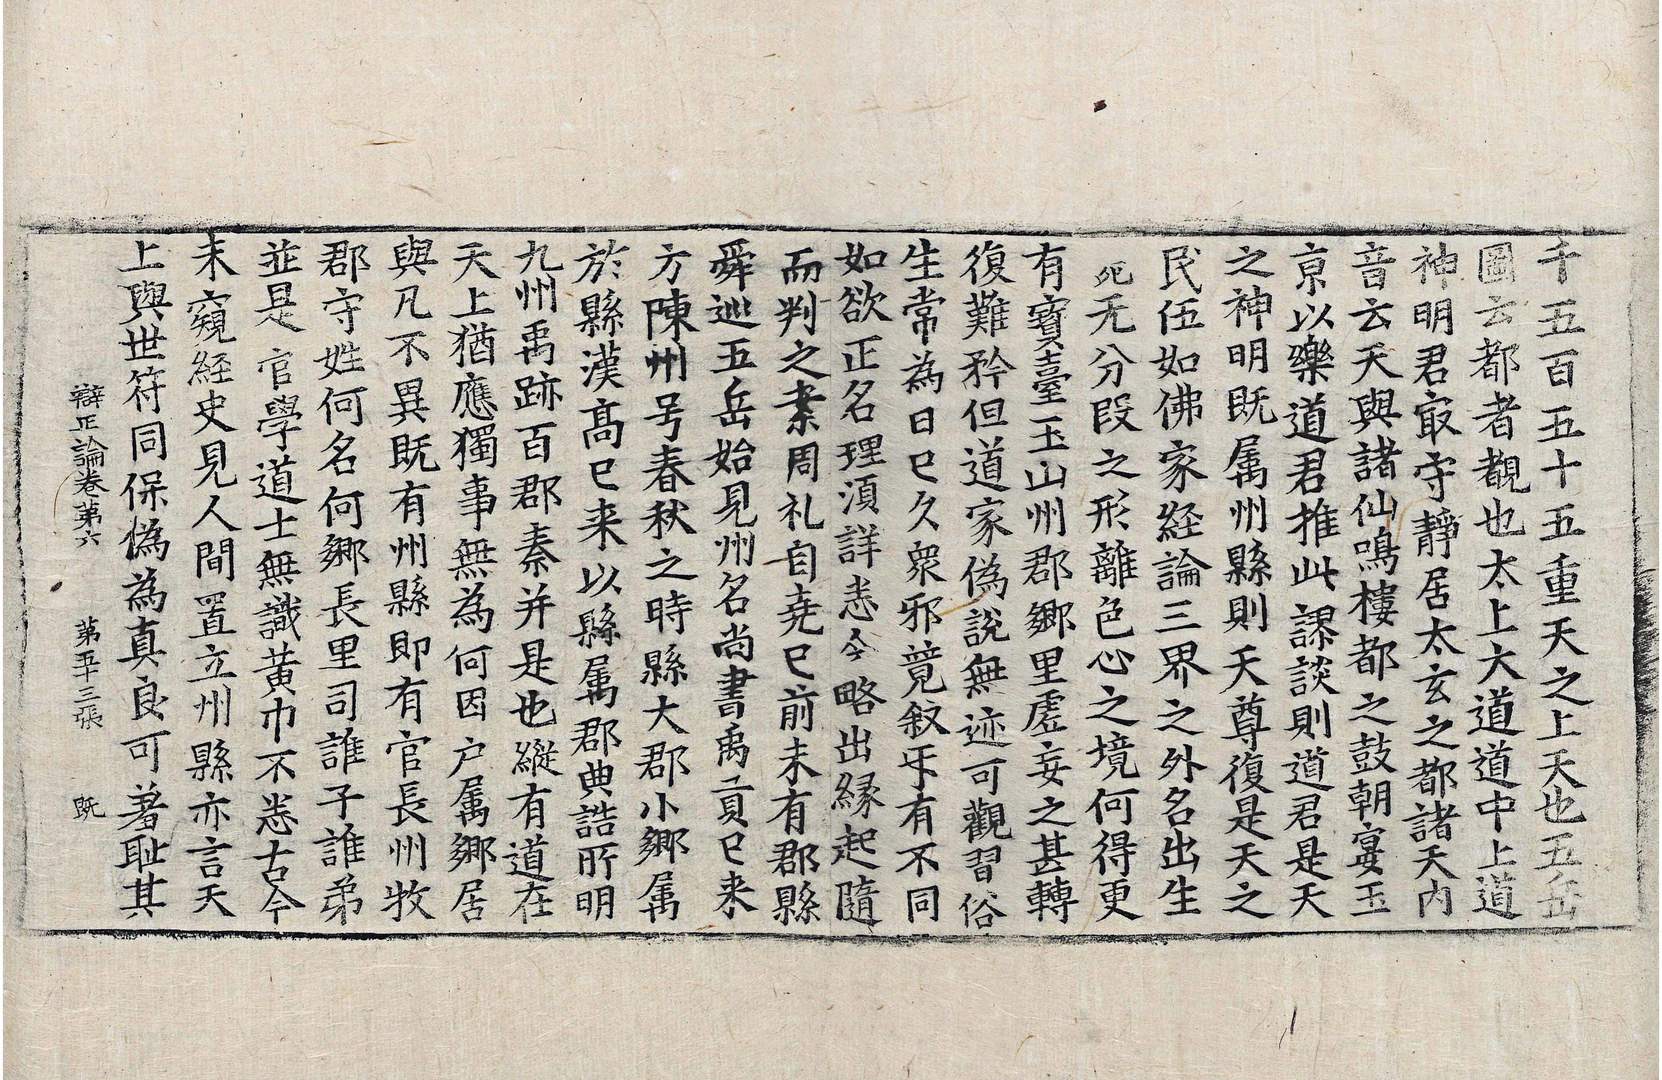 千五百五十五重天之上天也五岳
圖云都者覩也太上大道道中上道
神明君㝡守靜居太玄之都諸天内
音云天與諸仙鳴樓都之鼓朝宴玉
京以樂道君推此謬談則道君是天
之神明既属州縣則天尊復是天之
民伍如佛家経論三界之外名出生
死无分段之形離色心之境何得更
有寶臺玉山州郡鄉里虗妄之甚轉
復難矜但道家偽說無迹可觀習俗
生常為日巳久衆邪竟叙㸦有不同
如欲正名理湏詳悉今略出緣起隨
而判之案周礼自尭巳前未有郡縣
舜巡五岳始見州名尚書禹貢巳来
方陳州号春秋之時縣大郡小鄉属
於縣漢髙巳来以縣属郡典誥所明
九州禹跡百郡秦并是也縱有道在
天上猶應獨事無為何因户属鄉居
與凡不異既有州縣即有官長州牧
郡守姓何名何鄉長里司誰子誰弟
並是官學道士無識黄巾不悉古今
未窺経史見人間置立州縣亦言天
上與世符同保偽為真良可著耻其
辯正論卷第六　第五十三張　既